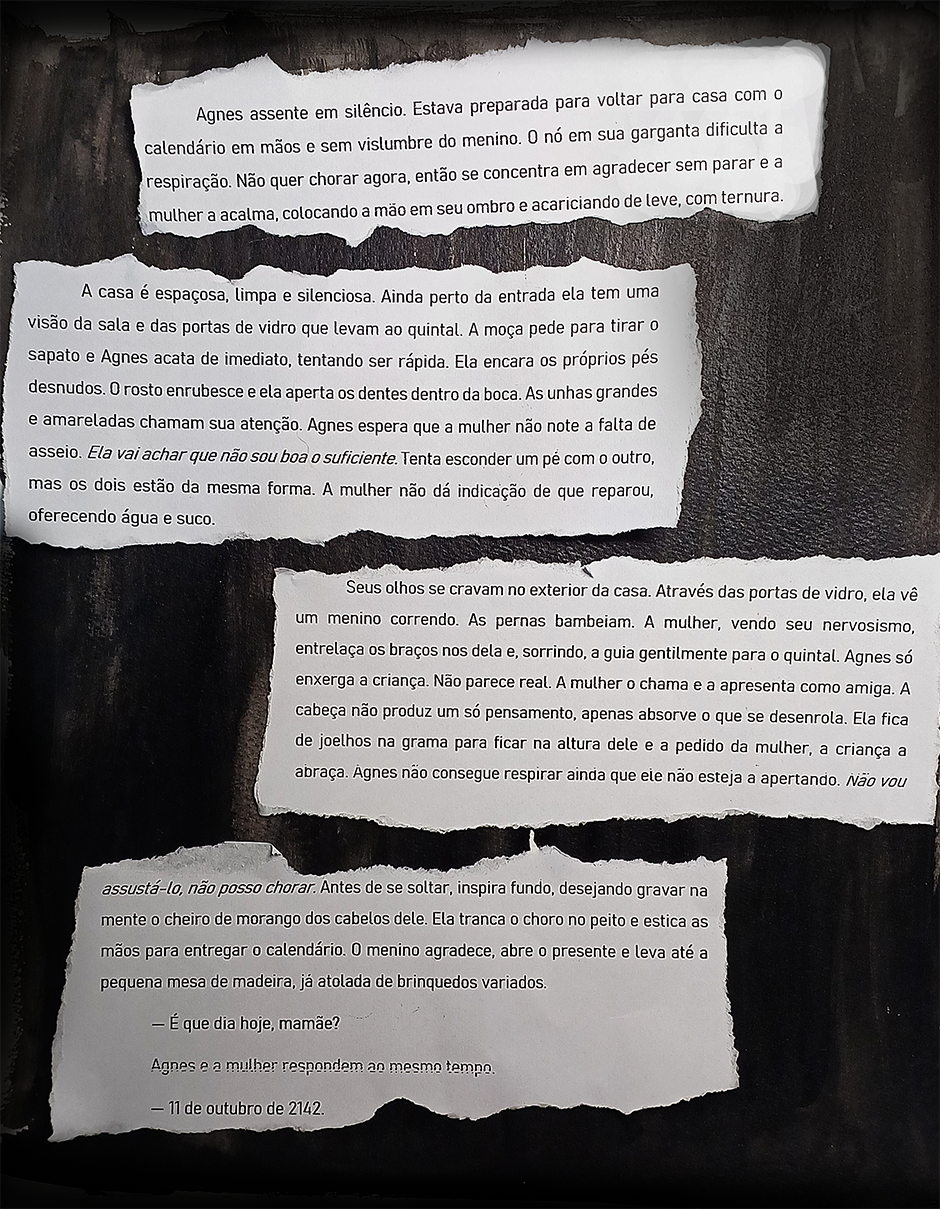 Agnes assente em silêncio. Estava preparada para voltar para casa com o
calendário em mãos e sem vislumbre do menino. O nó em sua garganta dificulta a
respiração. Não quer chorar agora, então se concentra em agradecer sem parar e a
mulher a acalma, colocando a mão em seu ombro e acariciando de leve, com ternura.
A casa é espaçosa, limpa e silenciosa. Ainda perto da entrada ela tem uma
visão da sala e das portas de vidro que levam ao quintal. A moça pede para tirar o
sapato e Agnes acata de imediato, tentando ser rápida. Ela encara os próprios pés
desnudos. O rosto enrubesce e ela aperta os dentes dentro da boca. As unhas grandes
e amareladas chamam sua atenção. Agnes espera que a mulher não note a falta de
asseio. Ela vai achar que não sou boa o suficiente. Tenta esconder um pé com o outro,
mas os dois estão da mesma forma. A mulher não dá indicação de que reparou,
oferecendo água e suco.
Seus olhos se cravam no exterior da casa. Através das portas de vidro, ela vê
um menino correndo. As pernas bambeiam. A mulher, vendo seu nervosismo,
entrelaça os braços nos dela e, sorrindo, a guia gentilmente para o quintal. Agnes só
enxerga a criança. Não parece real. A mulher o chama e a apresenta como amiga. A
cabeça não produz um só pensamento, apenas absorve o que se desenrola. Ela fica
de joelhos na grama para ficar na altura dele e a pedido da mulher, a criança a
abraça. Agnes não consegue respirar ainda que ele não esteja a apertando. Não vou
assustá-lo, não posso chorar. Antes de se soltar, inspira fundo, desejando gravar na
mente o cheiro de morango dos cabelos dele. Ela tranca o choro no peito e estica as
mãos para entregar o calendário. O menino agradece, abre o presente e leva até a
pequena mesa de madeira, já atolada de brinquedos variados.
— É que dia hoje, mamãe?
Agnes e a mulher respondem ao mesmo tempo.
— 11 de outubro de 2142.